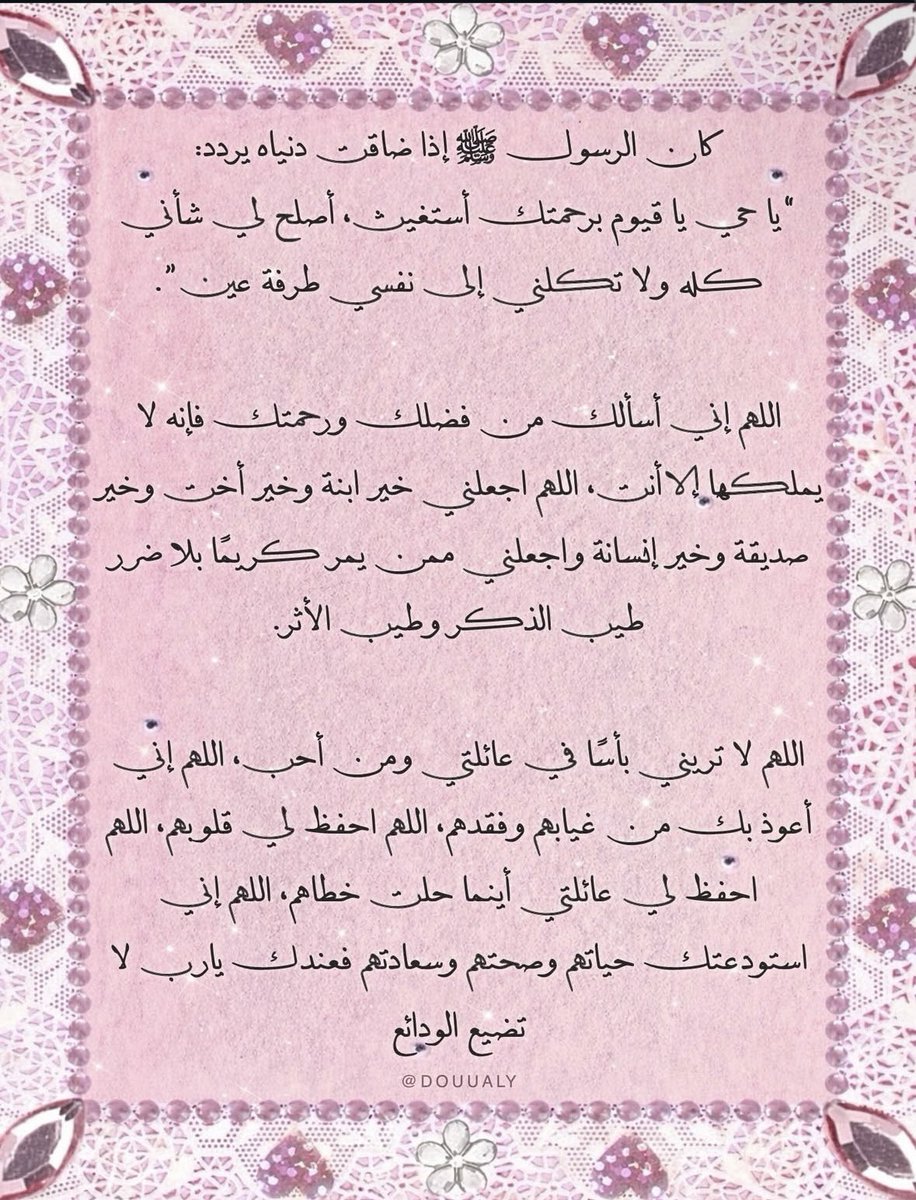 كان الرسول ﷺ إذا ضاقت دنياه يردد:
"يا حي يا قيوم برحمتك أستغيث، أصلح لي شأني
كله ولا تكلني إلى نفسي طرفة عين".
اللهم إني أسألك من فضلك ورحمتك فإنه لا
يملكها إلا أنت، اللهم اجعلني خير ابنة وخير أخت وخير
صديقة وخير إنسانة واجعلني ممن يمر كريمًا بلا ضرر
طيب الذكر وطيب الأثر.
اللهم لا تريني بأسًا في عائلتي ومن أحب، اللهم إني
أعوذ بك من غيابهم وفقدهم، اللهم احفظ لي قلوبهم، اللهم
احفظ لي عائلتي أينما حلت خطاهم، اللهم إني
استودعتك حياتهم وصحتهم وسعادتهم فعندك يارب لا
تضيع الودائع
@DOUUALY